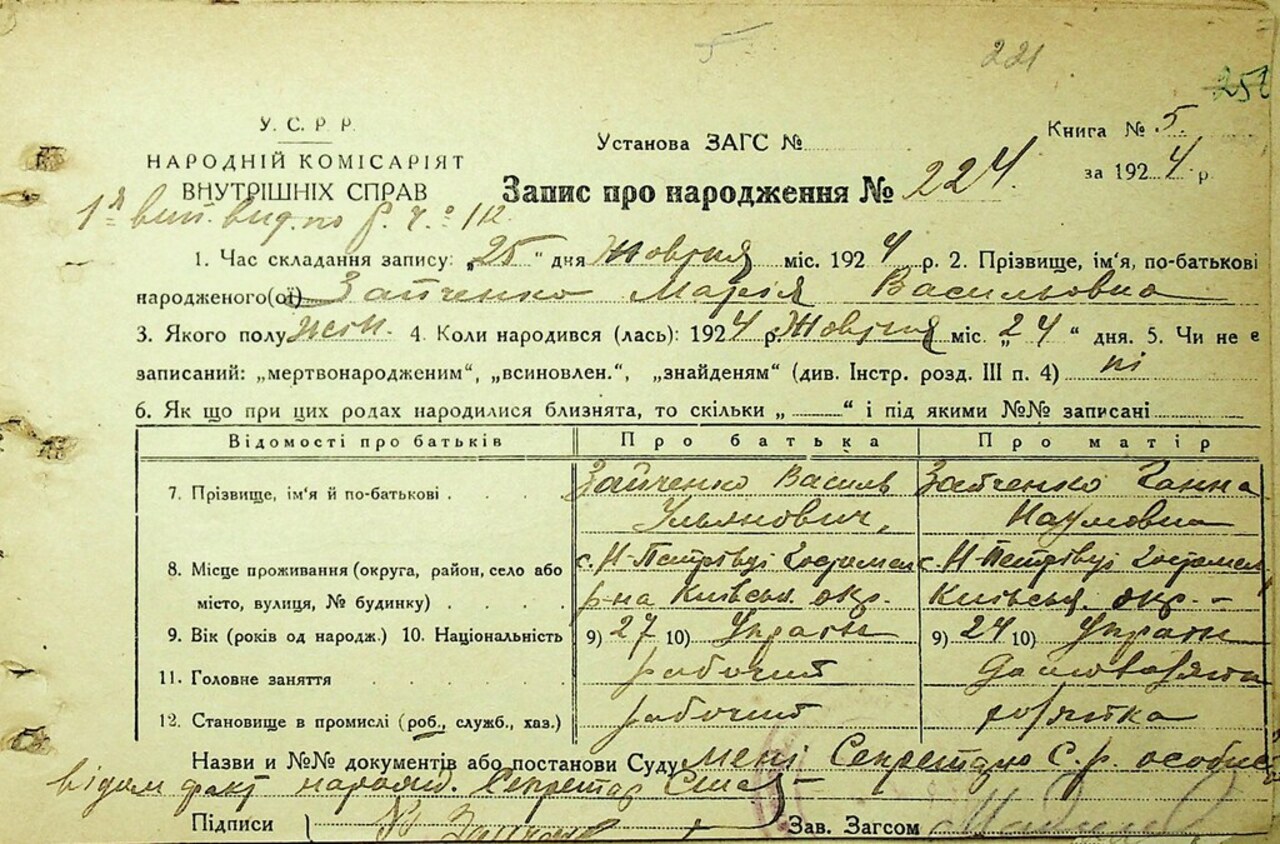 221
251
У. С. Р Р.
НАРОДНІЙ КОМІСАРІЯТ
ВНУТРІШНІХ СПРАВ
Установа ЗАГС №
Книга № 5.
за 1924 р.
Запис про народження № 224.
1. Час складання запису: „25“ дня Жовтня міс. 1924 р. 2. Прізвище, ім'я, по-батькові
народженого(ої) Зайченко Марія Васильовна
3. Якого полу жін. 4. Коли народився (лась): 1924 р. Жовтня міс. „24“ дня. 5. Чи не є
записаний: „мертвонародженим“, „всиновлен.“, „знайденям“ (див. Інстр. розд. III п. 4) ні
6. Як що при цих родах народилися близнята, то скільки „ “ і під якими №№ записані
Відомості про батьків Про батька Про матір
7. Прізвище, ім'я й по-батькові . . . . Зайченко Василь Зайченко Ганна
Ульянович, Наумовна
8. Місце проживання (округа, район, село або с. Н-Петрівці Гостомел с. Н-Петрівці Гостомел
місто, вулиця, № будинку) . . . . р-на Київськ. окр. Київськ. окр. –
9. Вік (років од народж.) 10. Національність 9) 27 10) Украін 9) 24 10) Украін
11. Головне заняття . . . . рабочий
12. Становище в промислі (роб., служб., хаз.) рабочий
Назви и №№ документів або постанови Суду мені Секретарю С. р. особисто
відом факт народж. Секретар
Підписи Зав. Загсом